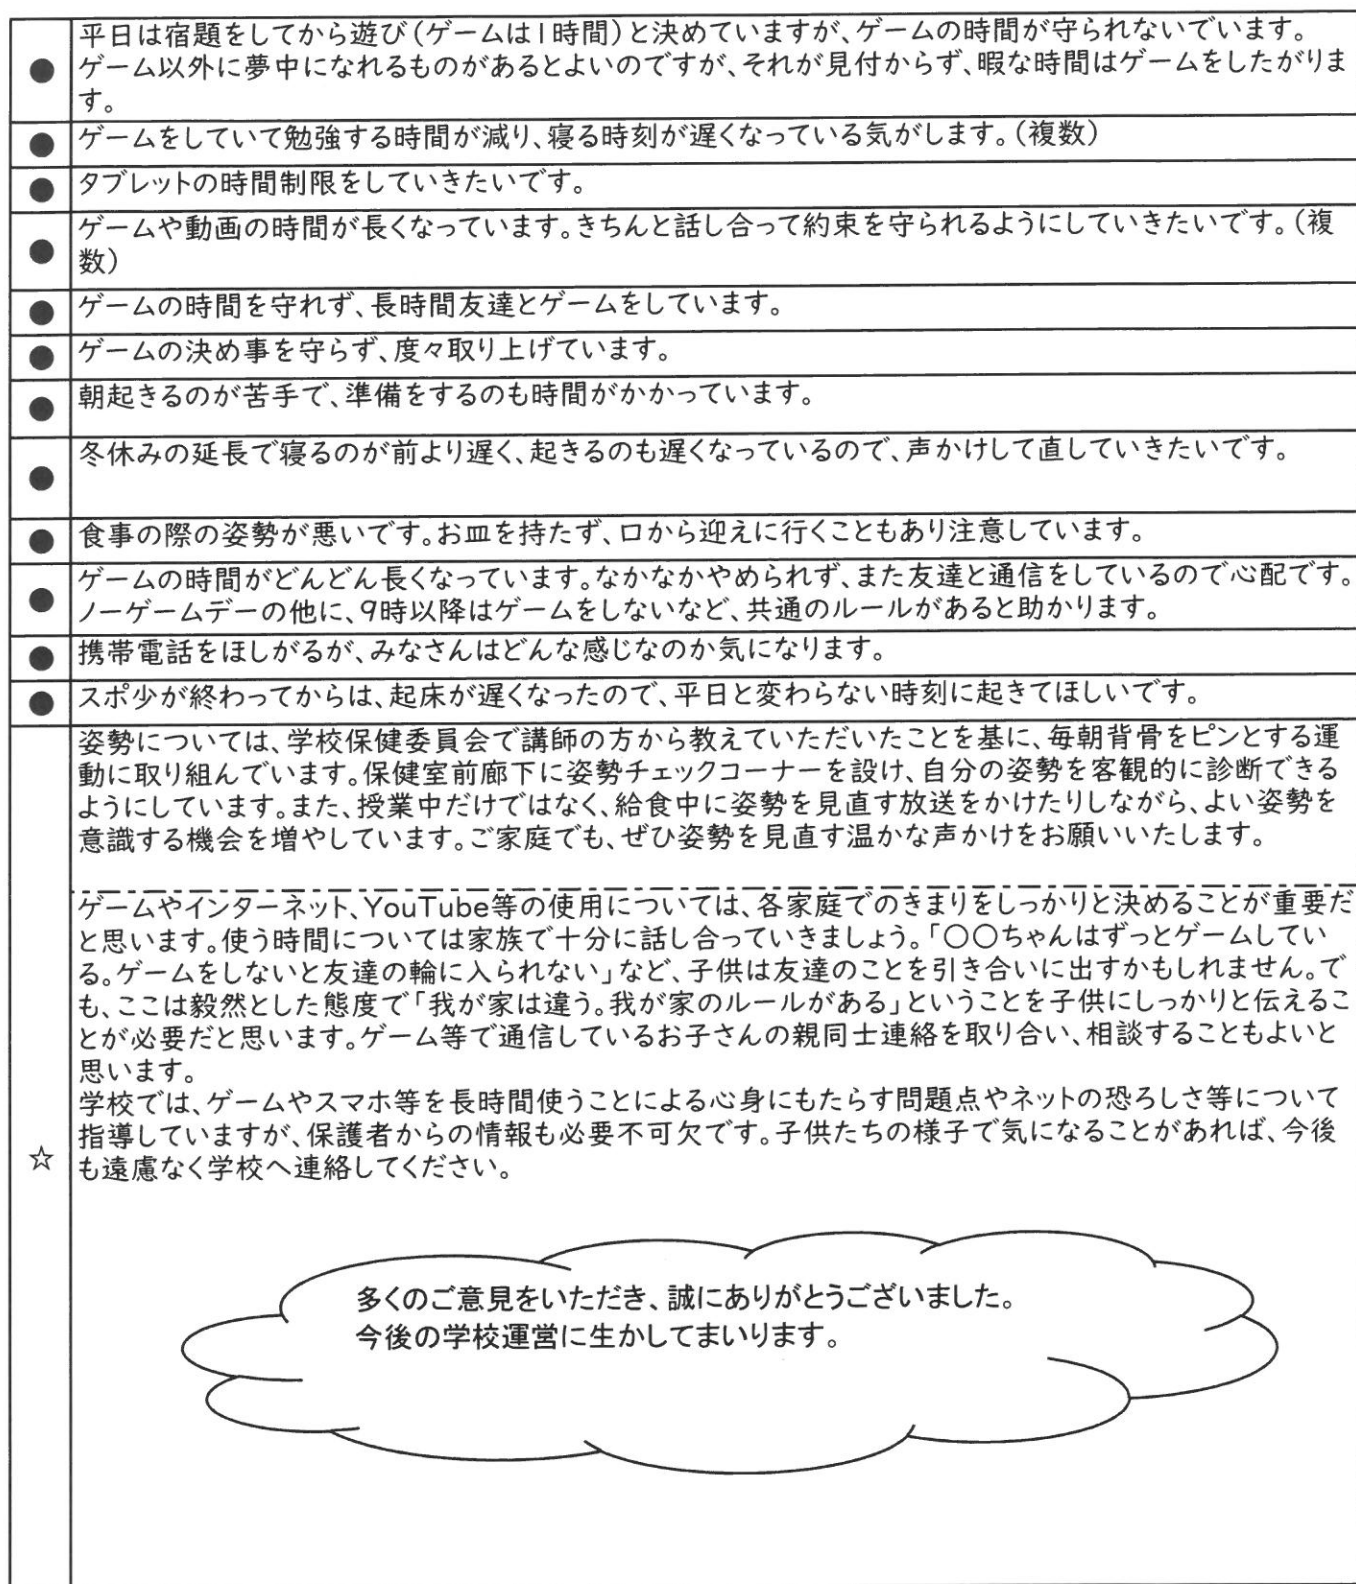 ● 平日は宿題をしてから遊び(ゲームは1時間)と決めていますが、ゲームの時間が守られないでいます。
ゲーム以外に夢中になれるものがあるとよいのですが、それが見付からず、暇な時間はゲームをしたがりま
す。
● ゲームをしていて勉強する時間が減り、寝る時刻が遅くなっている気がします。(複数)
● タブレットの時間制限をしていきたいです。
● ゲームや動画の時間が長くなっています。きちんと話し合って約束を守られるようにしていきたいです。(複
数)
● ゲームの時間を守れず、長時間友達とゲームをしています。
● ゲームの決め事を守らず、度々取り上げています。
● 朝起きるのが苦手で、準備をするのも時間がかかっています。
● 冬休みの延長で寝るのが前より遅く、起きるのも遅くなっているので、声かけして直していきたいです。
● 食事の際の姿勢が悪いです。お皿を持たず、口から迎えに行くこともあり注意しています。
● ゲームの時間がどんどん長くなっています。なかなかやめられず、また友達と通信をしているので心配です。
ノーゲームデーの他に、9時以降はゲームをしないなど、共通のルールがあると助かります。
● 携帯電話をほしがるが、みなさんはどんな感じなのか気になります。
● スポ少が終わってからは、起床が遅くなったので、平日と変わらない時刻に起きてほしいです。
☆ 姿勢については、学校保健委員会で講師の方から教えていただいたことを基に、毎朝背骨をピンとする運
動に取り組んでいます。保健室前廊下に姿勢チェックコーナーを設け、自分の姿勢を客観的に診断できる
ようにしています。また、授業中だけではなく、給食中に姿勢を見直す放送をかけたりしながら、よい姿勢を
意識する機会を増やしています。ご家庭でも、ぜひ姿勢を見直す温かな声かけをお願いいたします。
ゲームやインターネット、YouTube等の使用については、各家庭でのきまりをしっかりと決めることが重要だ
と思います。使う時間については家族で十分に話し合っていきましょう。「〇〇ちゃんはずっとゲームしてい
る。ゲームをしないと友達の輪に入られない」など、子供は友達のことを引き合いに出すかもしれません。で
も、ここは毅然とした態度で「我が家は違う。我が家のルールがある」ということを子供にしっかりと伝えるこ
とが必要だと思います。ゲーム等で通信しているお子さんの親同士連絡を取り合い、相談することもよいと
思います。
学校では、ゲームやスマホ等を長時間使うことによる心身にもたらす問題点やネットの恐ろしさ等について
指導していますが、保護者からの情報も必要不可欠です。子供たちの様子で気になることがあれば、今後
も遠慮なく学校へ連絡してください。
多くのご意見をいただき、誠にありがとうございました。
今後の学校運営に生かしてまいります。